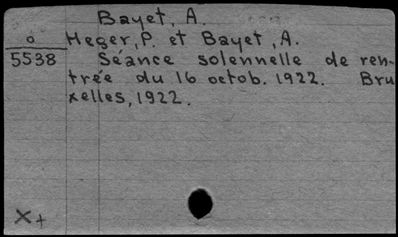 Bayet, A.
o Heger, P. et Bayet, A.
5538 Séance solennelle de ren-
trée du 16 octob. 1922. Bru
xelles, 1922.
X+